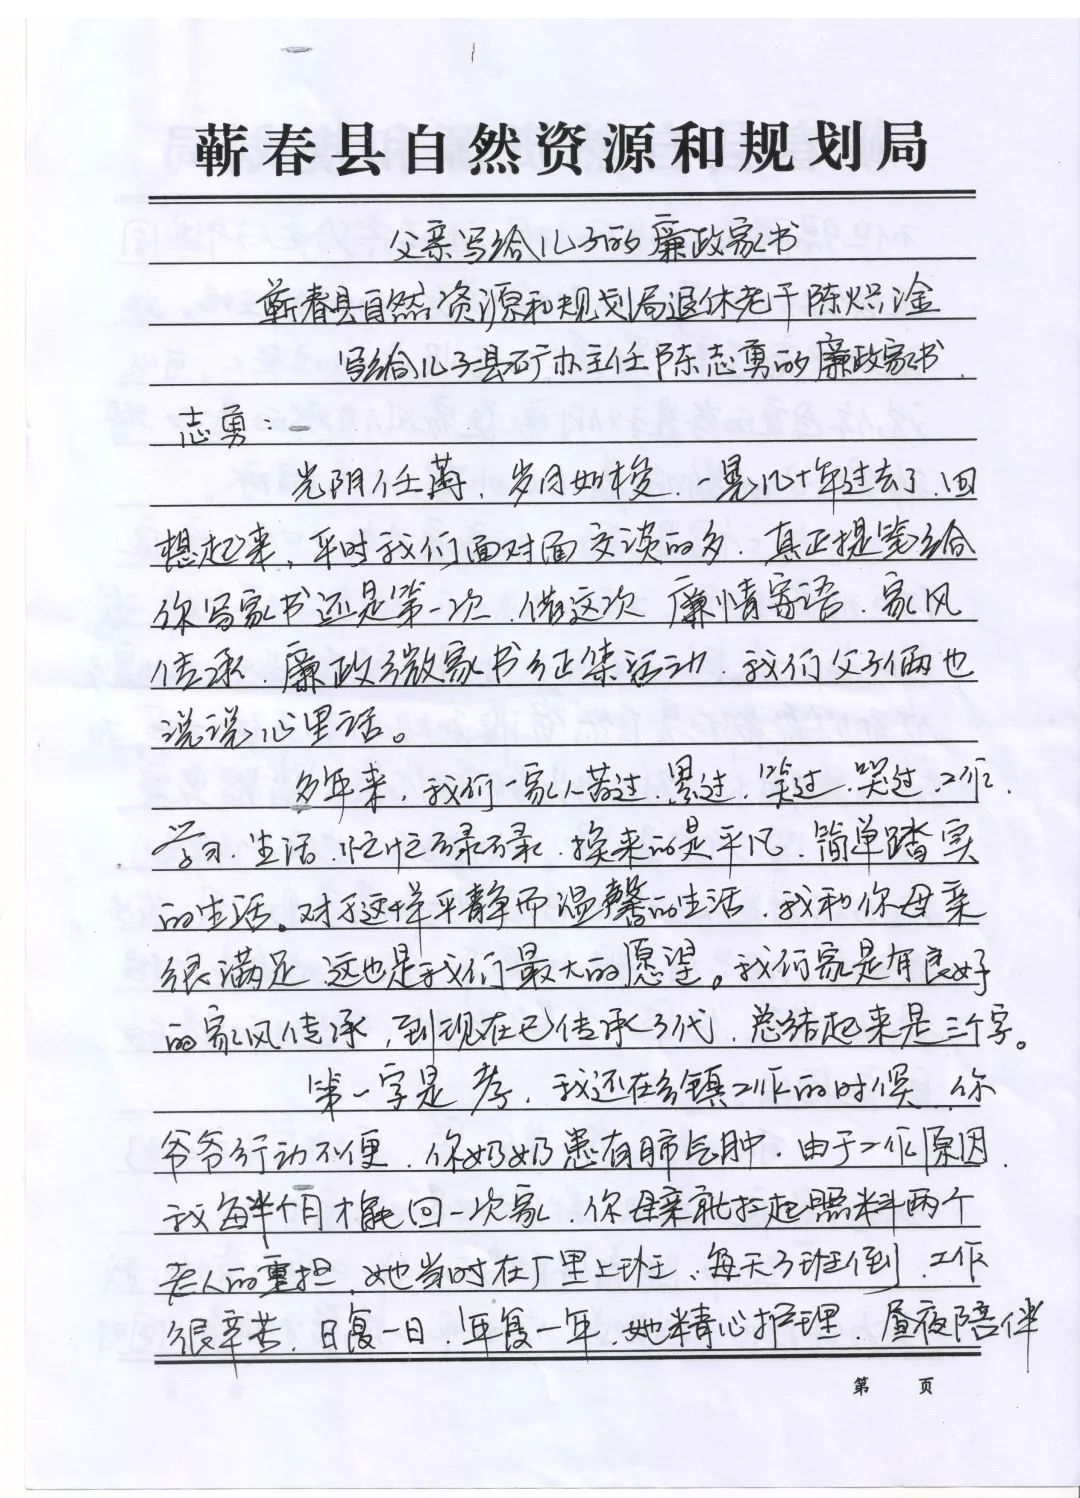 蕲春县自然资源和规划局
父亲写给儿子的廉政家书
蕲春县自然资源和规划局退休老干陈炽淦
写给儿子县矿办主任陈志勇的廉政家书.
志勇:
光阴任苒,岁月如梭,一晃几十年过去了,回
想起来,平时我们面对面交谈的多,真正提笔给
你写家书还是第一次,借这次廉情寄语、家风
传承、廉政微家书征集活动,我们父子俩也
说说心里话。
多年来,我们家人苦过、累过、笑过、哭过、工作、
学习、生活、忙忙碌碌,换来的是平凡、简单踏实
的生活。对于这样平静而温馨的生活,我和你母亲
很满足,这也是我们最大的愿望。我们家是有良好
的家风传承,到现在已传承3代,总结起来是三个字。
第一字是孝,我还在乡镇工作的时候,你
爷爷行动不便,你奶奶患有肺气肿,由于工作原因,
我每半个月才能回一次家,你母亲就扛起照料两个
老人的重担,她当时在厂里上班、每天3班倒,工作
很辛苦,日复一日,年复一年,她精心护理,昼夜陪伴
第 页